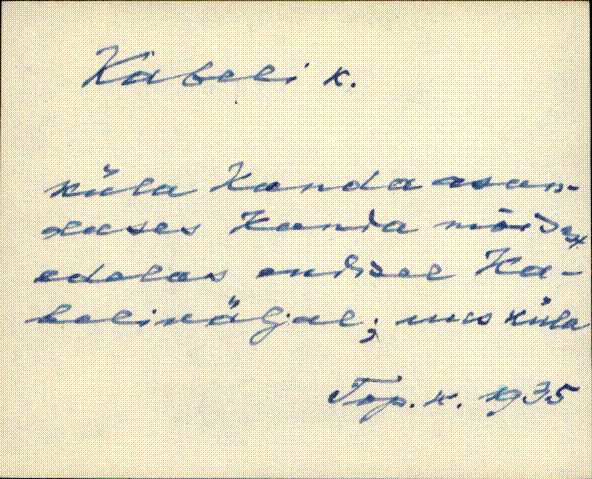 Kabeli k.
küla Kanda asun-
duses Kanda mõisast
edelas endisel Ka-
belinäljal; uus küla
Top. k. 1935